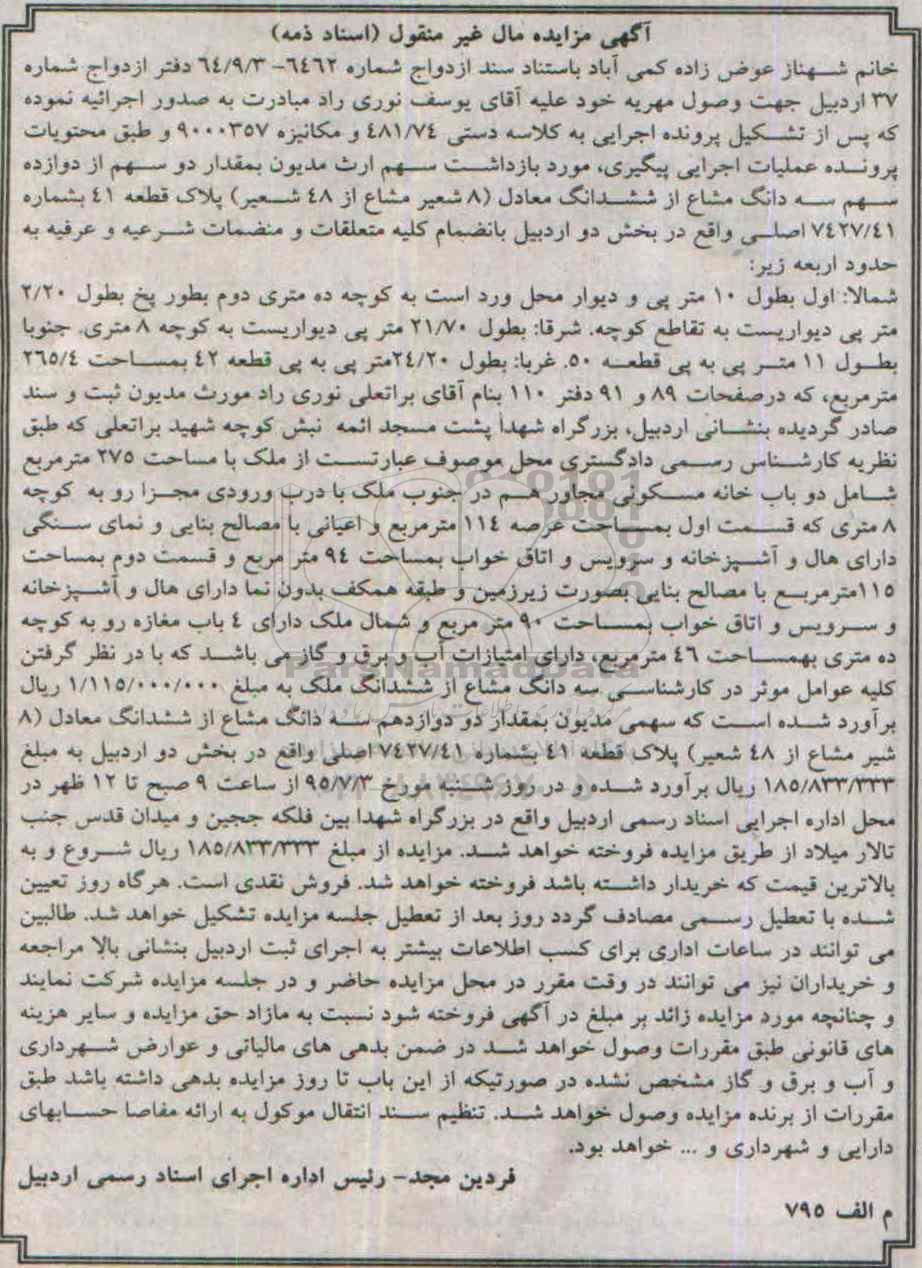 آگهی مزایده مال غیر منقول (اسناد ذمه)
خانم شهناز عوض زاده کمی آباد باستناد سند ازدواج شماره ٦٤٦٢- ٦٤/٩/٣ دفتر ازدواج شماره
٣٧ اردبیل جهت وصول مهریه خود علیه آقای یوسف نوری راد مبادرت به صدور اجرائیه نموده
که پس از تشکیل پرونده اجرایی به کلاسه دستی ٤٨١/٧٤ و مکانیزه ٩٠٠٠٣٥٧ و طبق محتویات
پرونده عملیات اجرایی پیگیری، مورد بازداشت سهم ارث مدیون بمقدار دو سهم از دوازده
سهم سه دانگ مشاع از ششدانگ معادل (٨ شعیر مشاع از ٤٨ شعیر) پلاک قطعه ٤١ بشماره
٧٤٢٧/٤١ اصلی واقع در بخش دو اردبیل بانضمام کلیه متعلقات و منضمات شرعیه و عرفیه به
حدود اربعه زیر:
شمالا: اول بطول ١٠ متر پی و دیوار محل ورد است به کوچه ده متری دوم بطور پخ بطول ٢/٢٠
متر پی دیواریست به تقاطع کوچه. شرقا: بطول ٢١/٧٠ متر پی دیواریست به کوچه ٨ متری. جنوبا
بطول ١١ متر پی به پی قطعه ٥٠. غربا: بطول ٢٤/٢٠متر پی به پی قطعه ٤٢ بمساحت ٢٦٥/٤
مترمربع، که درصفحات ٨٩ و ٩١ دفتر ١١٠ بنام آقای براتعلی نوری راد مورث مدیون ثبت و سند
صادر گردیده بنشانی اردبیل، بزرگراه شهدا پشت مسجد ائمه نبش کوچه شهید براتعلی که طبق
نظریه کارشناس رسمی دادگستری محل موصوف عبارتست از ملک با مساحت ٢٧٥ مترمربع
شامل دو باب خانه مسکونی مجاور هم در جنوب ملک با درب ورودی مجزا رو به کوچه
٨ متری که قسمت اول بمساحت عرصه ١١٤ مترمربع و اعیانی با مصالح بنایی و نمای سنگی
دارای هال و آشپزخانه و سرویس و اتاق خواب بمساحت ٩٤ متر مربع و قسمت دوم بمساحت
١١٥مترمربع با مصالح بنایی بصورت زیرزمین و طبقه همکف بدون نما دارای هال و آشپزخانه
و سرویس و اتاق خواب بمساحت ٩٠ متر مربع و شمال ملک دارای ٤ باب مغازه رو به کوچه
ده متری بهمساحت ٤٦ مترمربع، دارای امتیازات آب و برق و گاز می باشد که با در نظر گرفتن
کلیه عوامل موثر در کارشناسی سه دانگ مشاع از ششدانگ ملک به مبلغ ١/١١٥/٠٠٠/٠٠٠ ریال
برآورد شده است که سهمی مدیون بمقدار دو دوازدهم سه دانگ مشاع از ششدانگ معادل (٨
شیر مشاع از ٤٨ شعیر) پلاک قطعه ٤١ بشماره ٧٤٢٧/٤١ اصلی واقع در بخش دو اردبیل به مبلغ
١٨٥/٨٣٣/٣٣٣ ریال برآورد شده و در روز شنبه مورخ ٩٥/٧/٣ از ساعت ٩ صبح تا ١٢ ظهر در
محل اداره اجرایی اسناد رسمی اردبیل واقع در بزرگراه شهدا بین فلکه ججین و میدان قدس جنب
تالار میلاد از طریق مزایده فروخته خواهد شد. مزایده از مبلغ ١٨٥/٨٣٣/٣٣٣ ریال شروع و به
بالاترین قیمت که خریدار داشته باشد فروخته خواهد شد. فروش نقدی است. هرگاه روز تعیین
شده با تعطیل رسمی مصادف گردد روز بعد از تعطیل جلسه مزایده تشکیل خواهد شد. طالبین
می توانند در ساعات اداری برای کسب اطلاعات بیشتر به اجرای ثبت اردبیل بنشانی بالا مراجعه
و خریداران نیز می توانند در وقت مقرر در محل مزایده حاضر و در جلسه مزایده شرکت نمایند
و چنانچه مورد مزایده زائد بر مبلغ در آگهی فروخته شود نسبت به مازاد حق مزایده و سایر هزینه
های قانونی طبق مقررات وصول خواهد شد در ضمن بدهی های مالیاتی و عوارض شهرداری
و آب و برق و گاز مشخص نشده در صورتیکه از این باب تا روز مزایده بدهی داشته باشد طبق
مقررات از برنده مزایده وصول خواهد شد. تنظیم سند انتقال موکول به ارائه مفاصا حسابهای
دارایی و شهرداری و ... خواهد بود.
فردین مجد- رئیس اداره اجرای اسناد رسمی اردبیل
م الف ٧٩٥
ParsNamadData